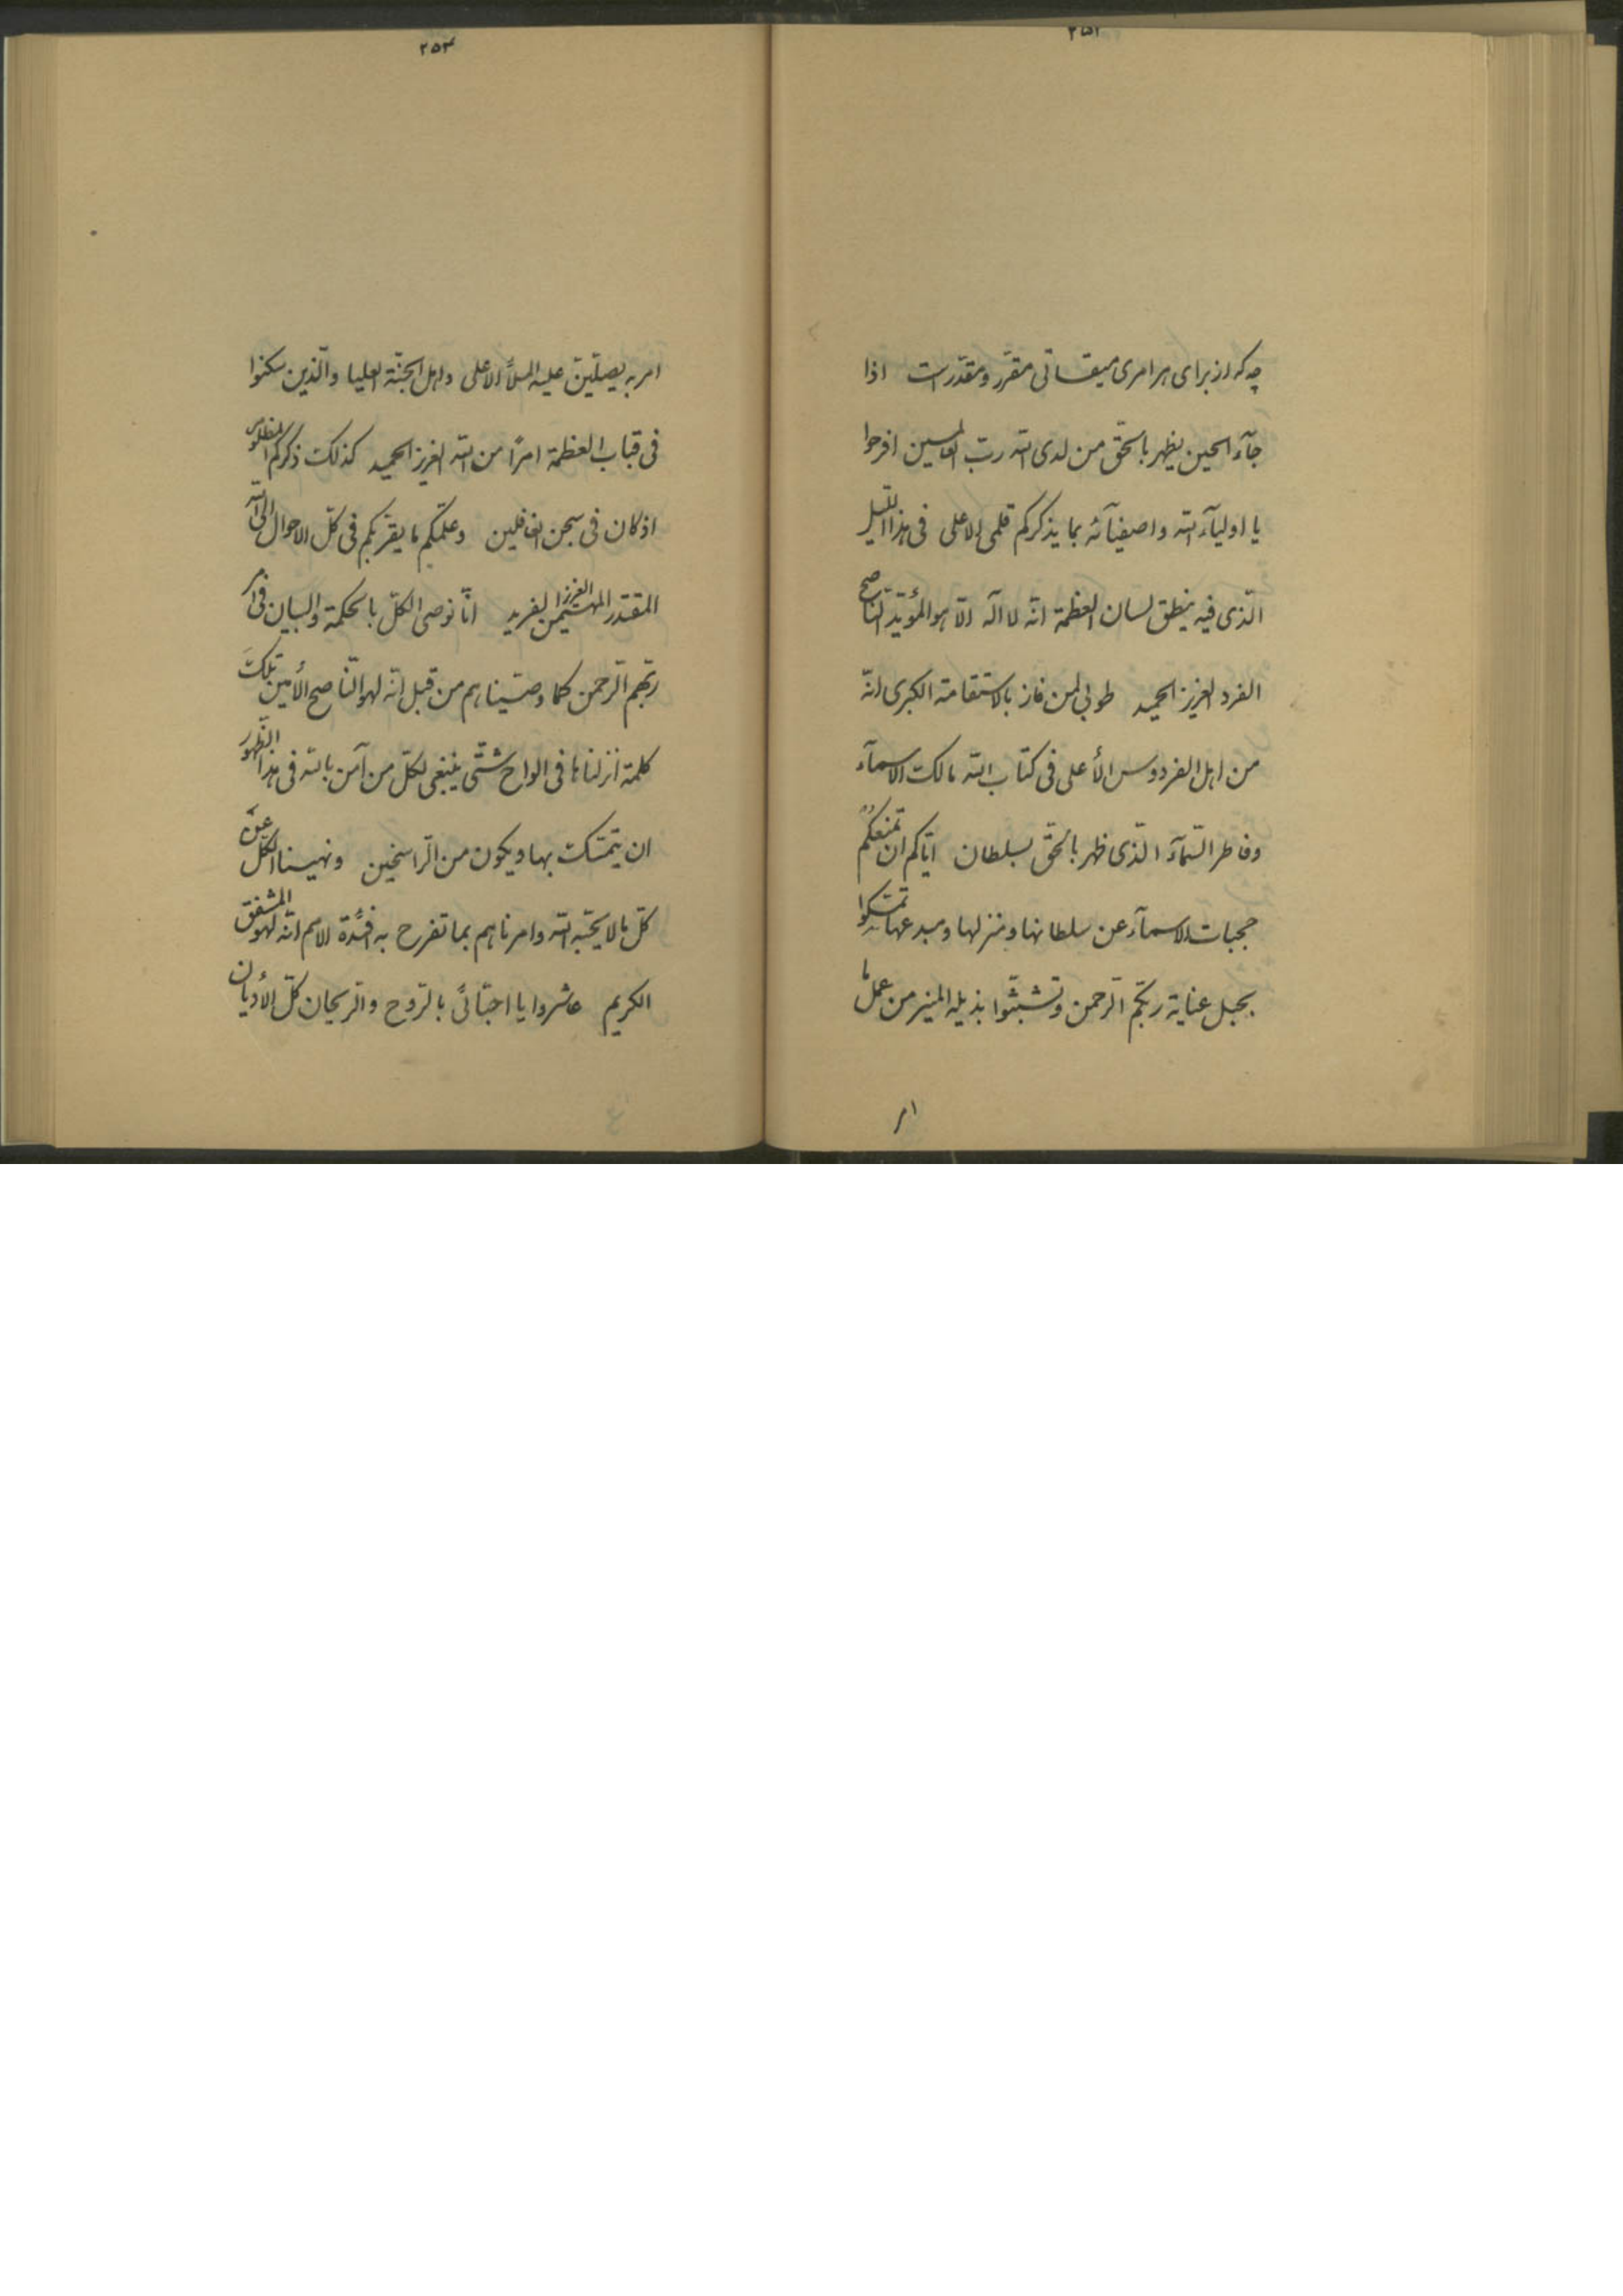 چه که از برای هر امری میقاتی مقرّر و مقدّر است اذا
جآء الحین یظهر بالحقّ من لدی الله ربّ العالمین افرحوا
یا اولیآء الله و اصفیآئه بما یذکرکم قلمی الاعلی فی هذا اللّیل
الّذی فیه ینطق لسان العظمة انّه لا اله الّا هو المؤیّد النّاصح
الفرد العزیز الحمید طوبی لمن فاز بالاستقامة الکبری انّه
من اهل الفردوس الأعلی فی کتاب الله مالک الاسمآء
و فاطر السّمآء الّذی ظهر بالحقّ بسلطان ایّاکم ان تمنعکم
حجبات الاسمآء عن سلطانها و منزلها و مبدعها تمسّکوا
بحبل عنایة ربّکم الرّحمن و تشبّثوا بذیله المنیر من عمل ما
امر
۲۵۳
امر به یصلّینّ علیه الملأ الاعلی و اهل الجنّة العلیا و الّذین سکنوا
فی قباب العظمة امرًا من الله العزیز الحمید کذلک ذکرکم المظلوم
اذ کان فی سجن الغافلین و علّمکم ما یقرّبکم فی کلّ الاحوال الی الله
المقتدر المهیمن العزیز الفرید انّا نوصی الکلّ بالحکمة و البیان فی امر
ربّهم الرّحمن کما وصّیناهم من قبل انّه لهو النّاصح الأمین تلک
کلمة انزلناها فی الواح شتّی ینبغی لکلّ من آمن بالله فی هذا الظّهور
ان یتمسّک بها و یکون من الرّاسخین و نهینا الکلّ عن
کلّ ما لا یحبّه الله و امرناهم بما تفرح به افئدة الامم انّه لهو المشفق
الکریم عاشروا یا احبّائی بالرّوح و الرّیحان کلّ الأدیان